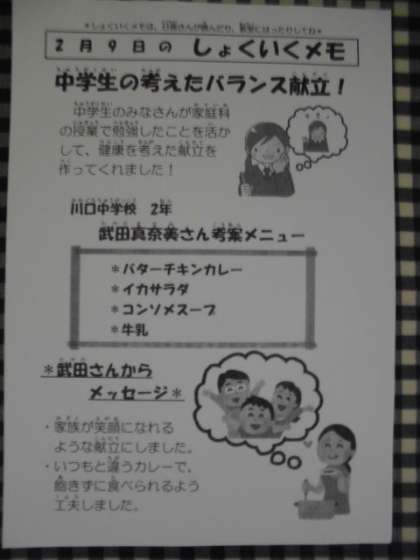 ＊しょくいくメモは、日直さんが読んだり、教室にはったりしてね＊
2月9日の しょくいくメモ
中学生の考えたバランス献立！
中学生のみなさんが家庭科
の授業で勉強したことを活か
して、健康を考えた献立を
作ってくれました！
川口中学校 2年
武田真奈美さん考案メニュー
＊バターチキンカレー
＊イカサラダ
＊コンソメスープ
＊牛乳
＊武田さんから
メッセージ＊
・家族が笑顔になれる
ような献立にしました。
・いつもと違うカレーで、
飽きずに食べられるよう
工夫しました。